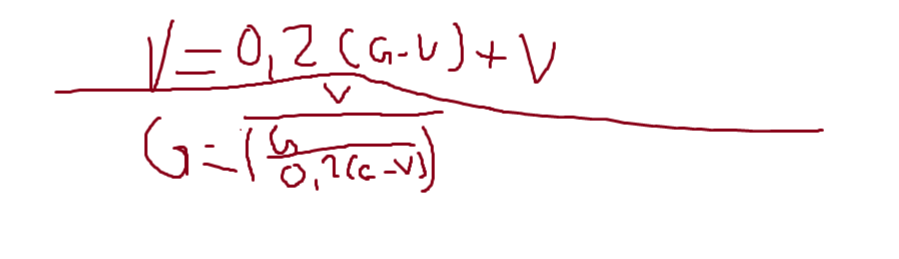 V=0,2(G-V)+V
G=V/(G/0,2(G-V))